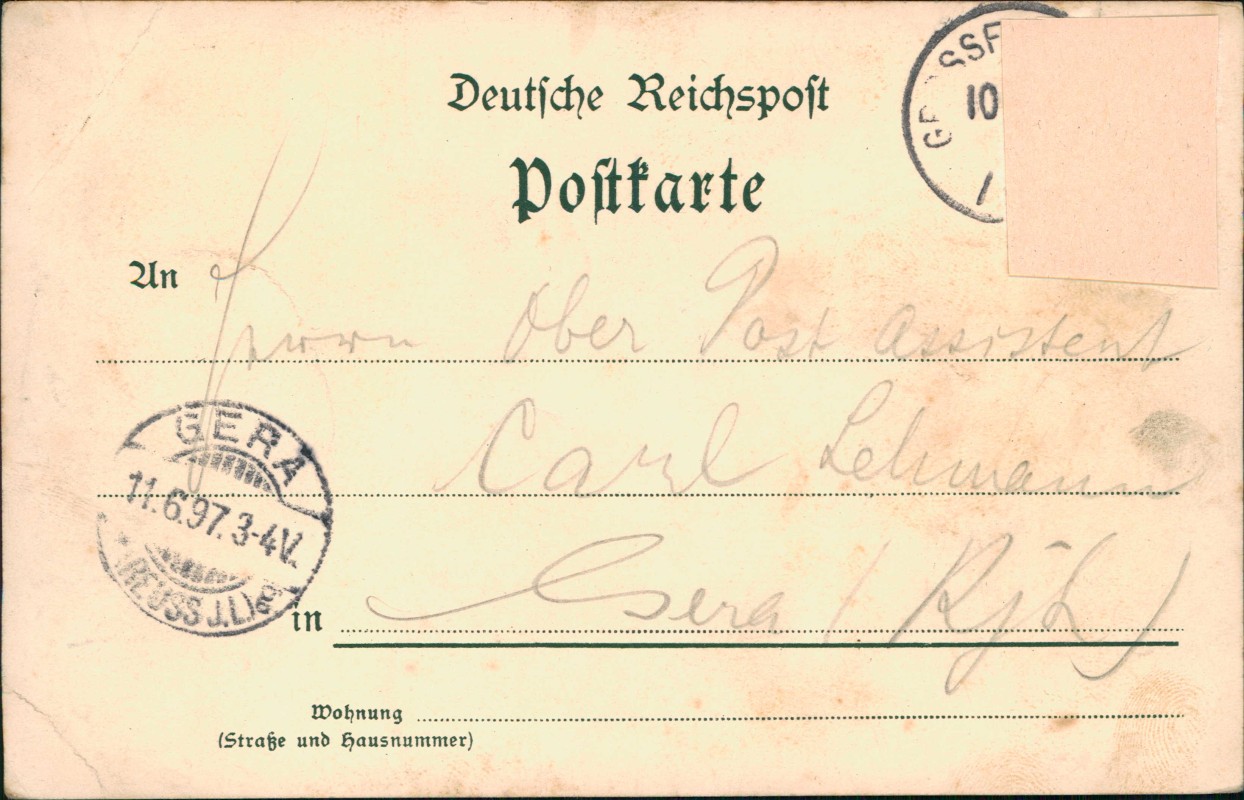 Deutsche Reichspost
Postkarte
An Herrn Ober Post Assistent
Carl Lehmann
in Gera (RjL)
Wohnung
(Straße und Hausnummer)
GERA
11.6.97.3-4V.
(REUSS J.L)
10